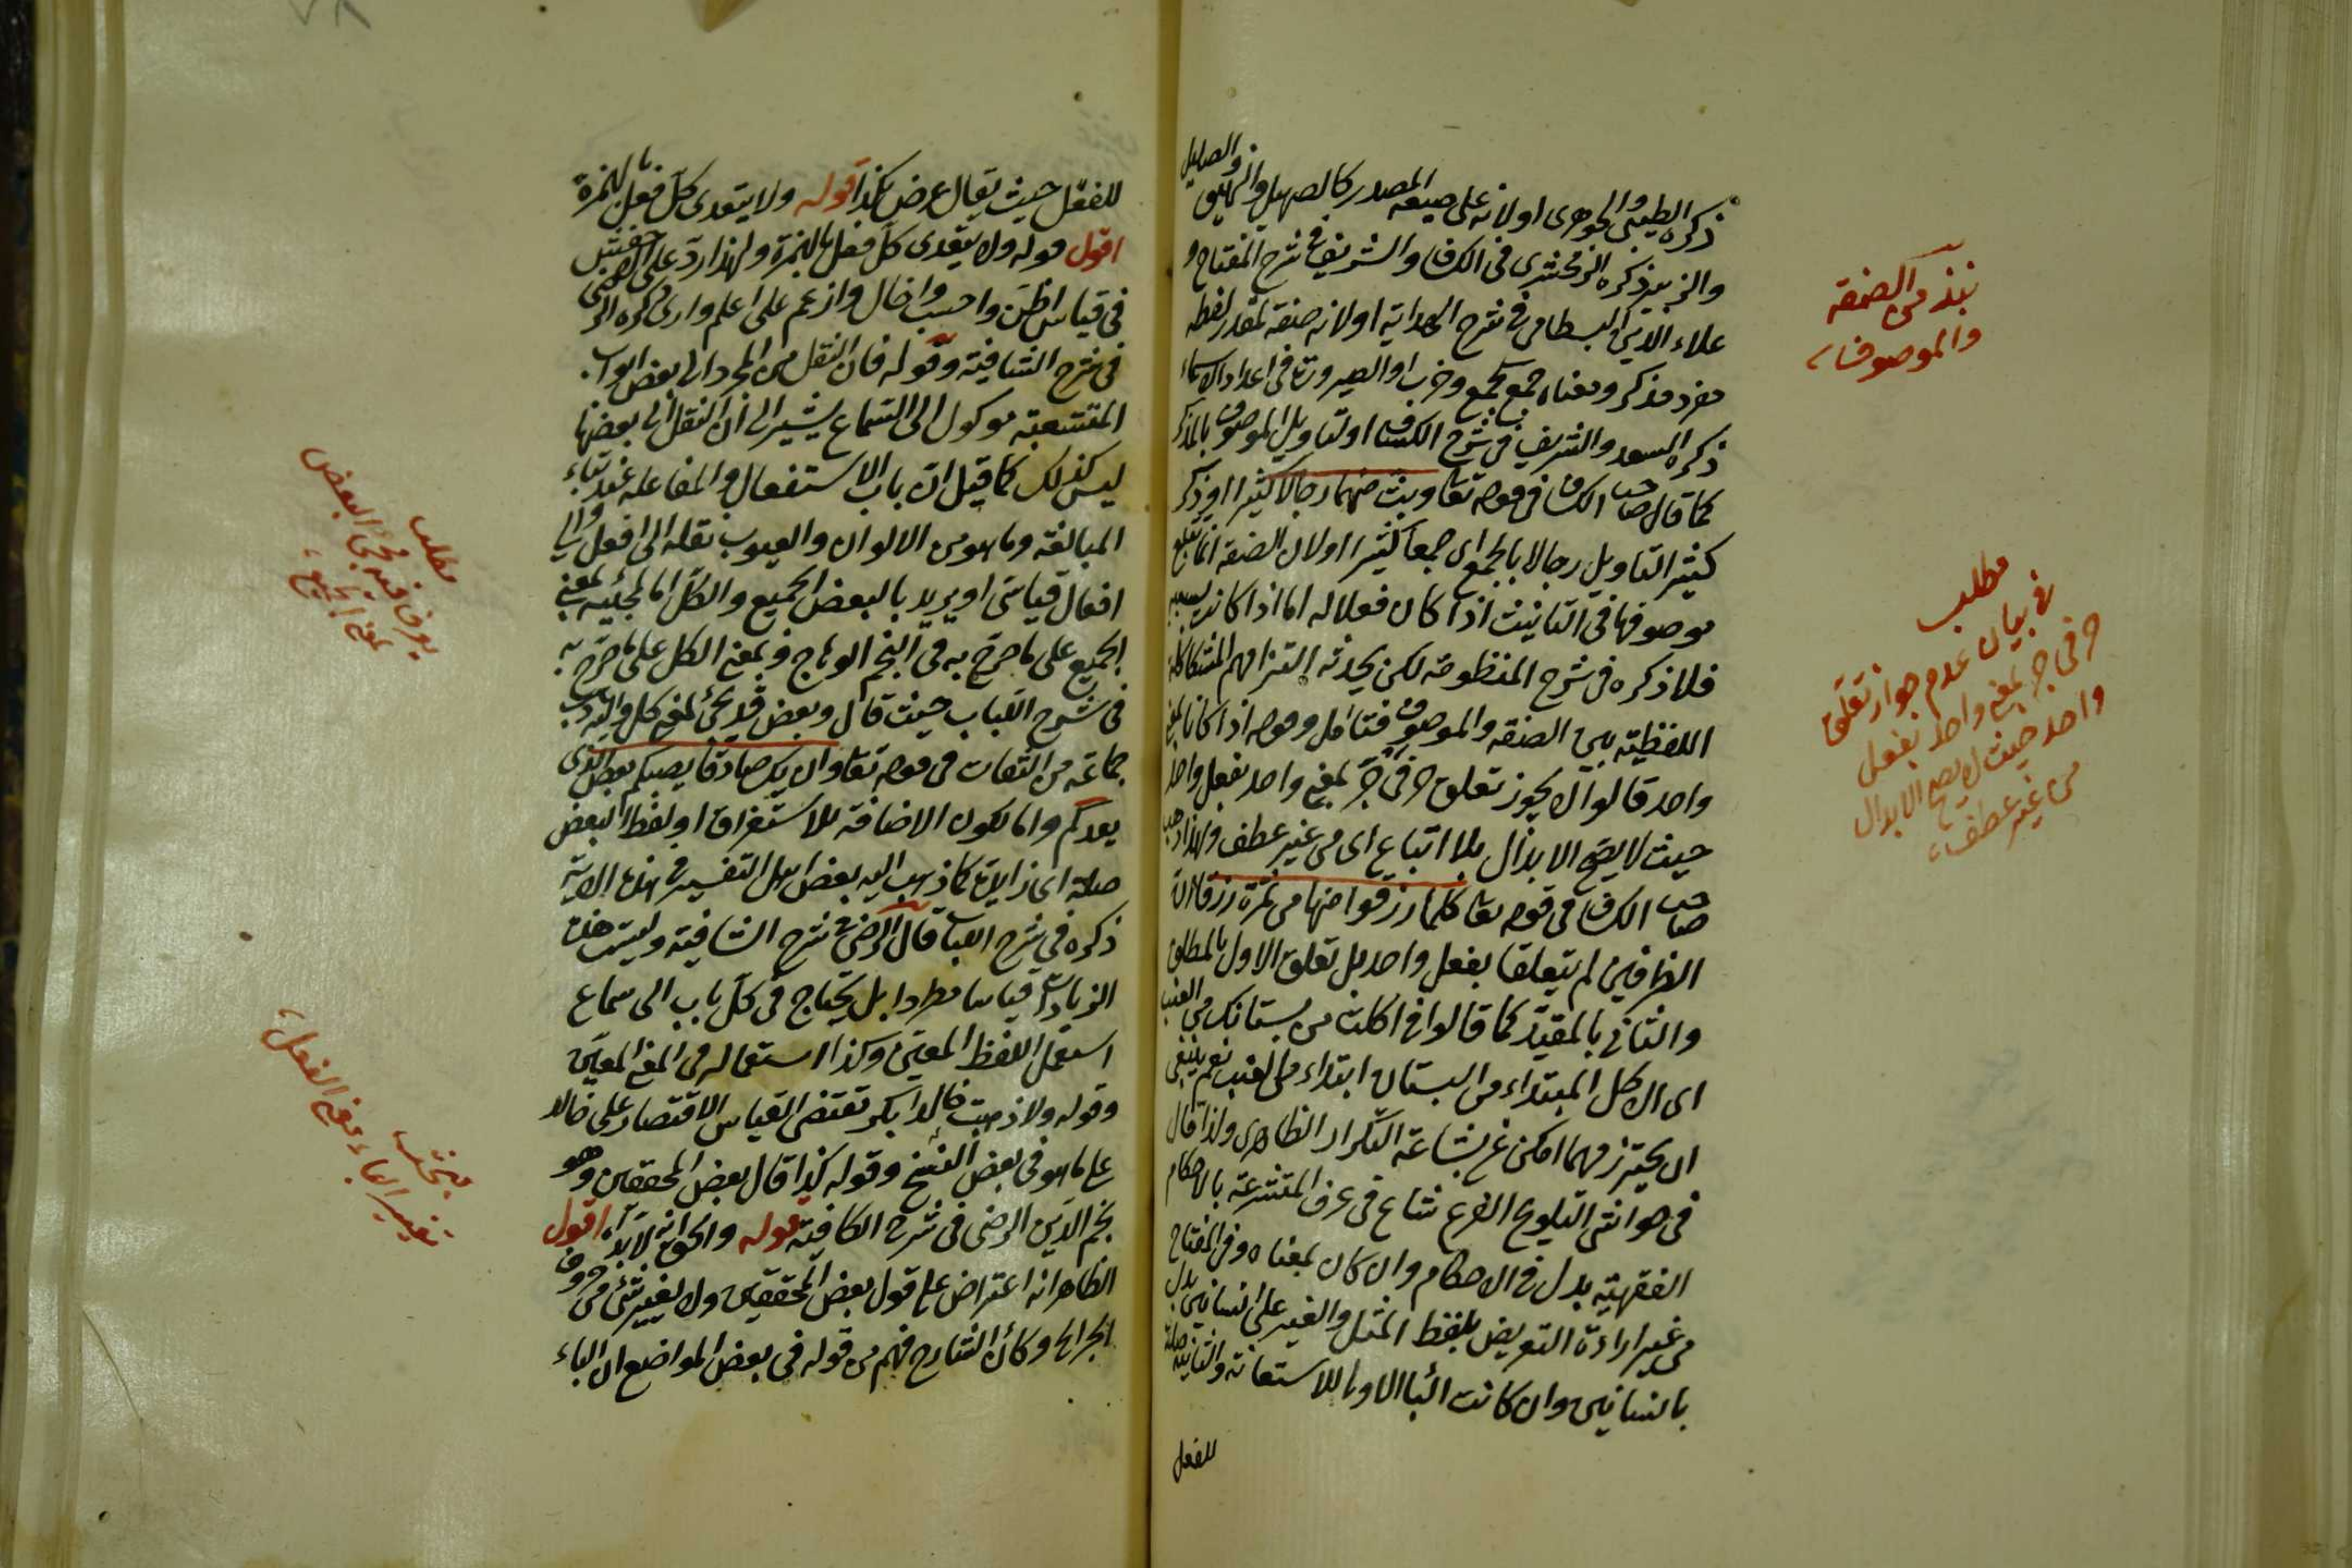 ذكره الطيبى والجوهرى او لانه على صيغه المصدر كالصهيل والنهيق والصليل
والزبير ذكره الزمخشرى فى الكشاف والشريف فى شرح المفتاح و
علاء الدين البسطامى فى شرح الهداية او لانه صفة لمقدر لفظه
مفرد مذكر ومعناه جمع كجمع وحزب او الصيرورته فى اعداد الاسماء
ذكره السعد والشريف فى شرح الكشاف او لتاويل الموصوف بالمذكر
كما قال صاحب الكشاف فى قوله تعا وبث منهما رجالا كثيرا او ذكر
كثيرا لتاويل رجالا بالجمع اى جمعا كثيرا او لان الصفة انما تتبع
موصوفها فى التانيث اذا كان فعلا له اما اذا كانت لسببه
فلا ذكره فى شرح المنظومة لكن يخدشه التزامهم المشاكلة
اللفظية بين الصفة والموصوف فتامل وقوله اذا كانا بمعنى
واحد قالوا لا يجوز تعلق حرفى جر بمعنى واحد بفعل واحد
حيث لا يصح الابدال بلا اتباع اى من غير عطف ولهذا ذهب
صاحب الكشاف فى قوله تعا كلما رزقوا منها من ثمرة رزقا الى ان
الظرفين لم يتعلقا بفعل واحد بل تعلق الاول بالمطلق
والثانى بالمقيد كما قالوا فى اكلت من بستانك من العنب
اى الاكل المبتداء من البستان ابتداء من العنب نعم ينبغى
ان يحترز مهما امكن عن بشاعة التكرار الظاهرى ولذا قال
فى حواشى التلويح الفرع شاع فى عرف المتشرعة بالاحكام
الفقهية بدل فى الاحكام وان كان بمعناه وفى المفتاح
من غير اراءدة التعريض بلفظ المثل والغير على انسانين بدل
بانسانين وان كانت البا الاولى للاستعانة والثانية صلة
للفعل
نبذ من الصفة
والموصوف
مطلب
فى بيان عدم جواز تعلق
حرفى جر بمعنى واحد بفعل
واحد حيث لا يصح الابدال
من غير عطف
للفعل حيث يقال عرض بكذا قوله ولا يتعدى كل فعل بالهمزة
اقول قوله ولا يتعدى كل فعل بالهمزة ولهذا رد على الاخفش
فى قياس اظن واحسب واخال وازعم على اعلم وارى ذكره الرضى
فى شرح الشافية وقوله فان النقل من المجرد الى بعض ابواب
المتشعبة موكول الى السماع يشير الى ان النقل الى بعضها
ليس كذلك كما قيل ان باب الاستفعال والمفاعلة عند بناء
المبالغة وما هو من الالوان والعيوب نقله الى افعل والى
افعال قياسى او يريد بالبعض الجميع والكل اما لمجئيه بمعنى
الجميع على ما صرح به فى النجم الوهاج وبمعنى الكل على ما صرح به
فى شرح اللباب حيث قال وبعض قد يجئ لمعنى كل واليه ذهب
جماعة من الثقات فى قوله تعا وان يك صادقا يصبكم بعض الذى
يعدكم واما لكون الاضافة للاستغراق او لفظ البعض
صلة اى زايدة كما ذهب اليه بعض اهل التفسير فى هذه الاية
ذكره فى شرح اللباب قال الرضى فى شرح الشافية وليست هذه
الزيادات قياسا مطردا بل يحتاج فى كل باب الى سماع
استعمل اللفظ المعين وكذا استعماله فى المعنى المعين
وقوله ولا ذهبت خالدا بكر تقتضى القياس الاقتصار على خالد
على ما هو فى بعض النسخ وقوله كذا قال بعض المحققين وهو
نجم الدين الرضى فى شرح الكافية قوله والحق انه لا بد آه اقول
الظاهر انه اعتراض على قول بعض المحققين ولا يغير شئ من حروف
الجر الخ وكأن الشارح فهم من قوله فى بعض المواضع ان الباء
مطلب
يعرف فيه مجئ البعض
بمعنى الجميع
مبحث
تغيير الباء معنى الفعل